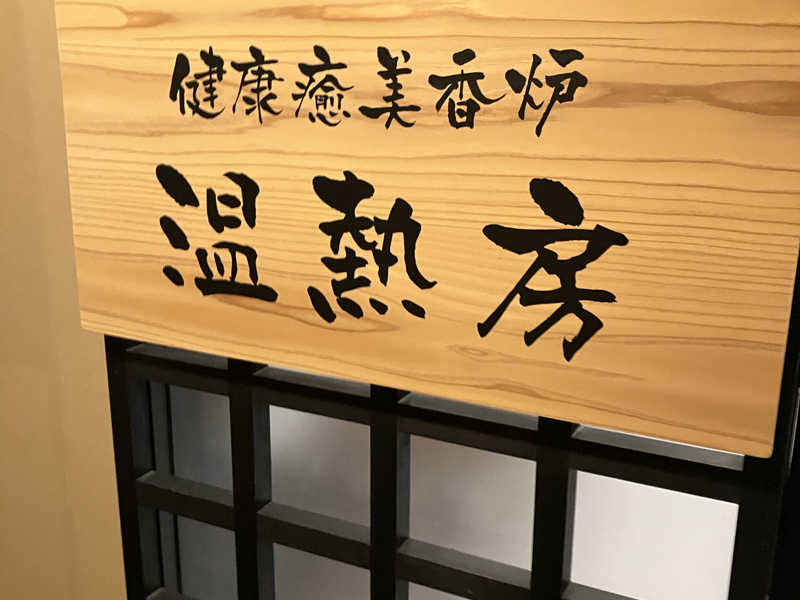 健康癒美香炉
温熱房